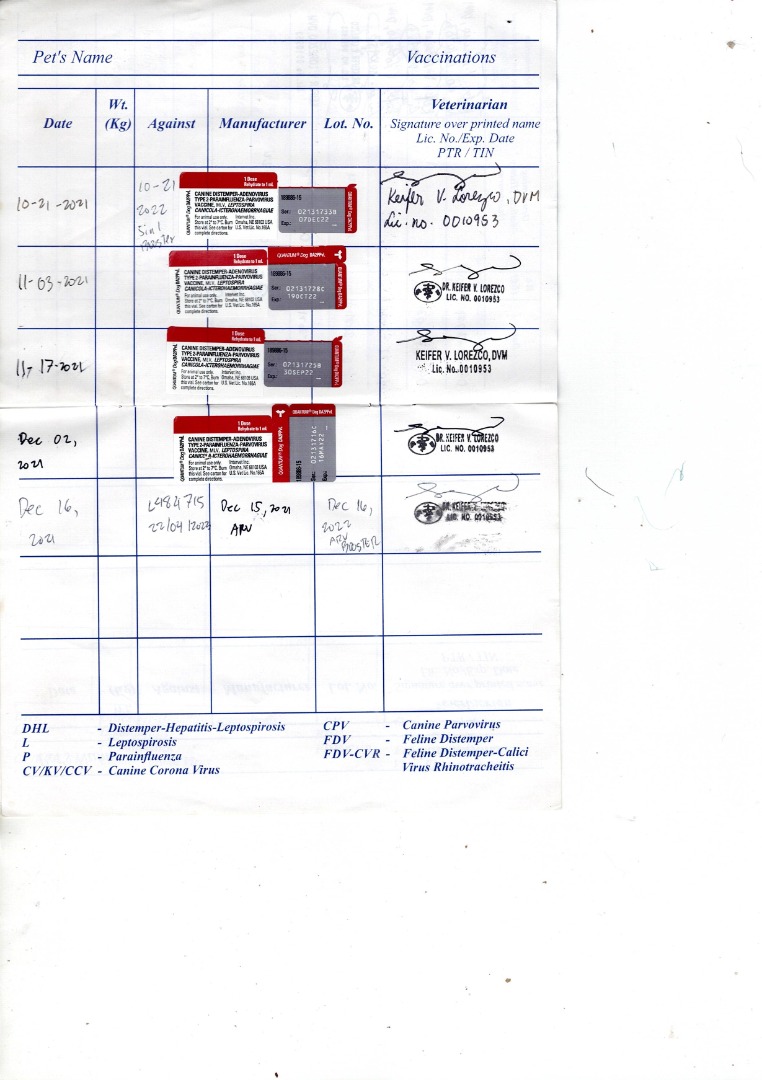 Pet's Name Vaccinations
Date Wt. (Kg) Against Manufacturer Lot. No. Veterinarian
Signature over printed name
Lic. No./Exp. Date
PTR / TIN
10-21-2021
10-21
2022
5in1
Booster
1 Dose
Rehydrate to 1 mL
QUANTUM® Dog DA2PPvL
CANINE DISTEMPER-ADENOVIRUS
TYPE 2-PARAINFLUENZA-PARVOVIRUS
VACCINE, MLV, LEPTOSPIRA
CANICOLA-ICTEROHAEMORRHAGIAE
For animal use only. Intervet Inc.
Store at 2° to 7°C. Burn Omaha, NE 68103 USA
this vial. See carton for U.S. Vet Lic. No.165A
complete directions.
189886-15
Ser: 02131733B
Exp: 07DEC22
Keifer V. Lorezco, DVM
Lic. no. 0010953
11-03-2021
1 Dose
Rehydrate to 1 mL
QUANTUM® Dog DA2PPvL
CANINE DISTEMPER-ADENOVIRUS
TYPE 2-PARAINFLUENZA-PARVOVIRUS
VACCINE, MLV, LEPTOSPIRA
CANICOLA-ICTEROHAEMORRHAGIAE
For animal use only. Intervet Inc.
Store at 2° to 7°C. Burn Omaha, NE 68103 USA
this vial. See carton for U.S. Vet Lic. No.165A
complete directions.
189886-15
Ser: 02131728C
Exp: 19OCT22
DR. KEIFER V. LOREZCO
LIC. NO. 0010953
11-17-2021
1 Dose
Rehydrate to 1 mL
CANINE DISTEMPER-ADENOVIRUS
TYPE 2-PARAINFLUENZA-PARVOVIRUS
VACCINE, MLV, LEPTOSPIRA
CANICOLA-ICTEROHAEMORRHAGIAE
For animal use only. Intervet Inc.
Store at 2° to 7°C. Burn Omaha, NE 68103 USA
this vial. See carton for U.S. Vet Lic. No.165A
complete directions.
189886-15
Ser: 02131725B
Exp: 30SEP22
KEIFER V. LOREZCO, DVM
Lic. No. 0010953
Dec 02,
2021
1 Dose
Rehydrate to 1 mL
CANINE DISTEMPER-ADENOVIRUS
TYPE 2-PARAINFLUENZA-PARVOVIRUS
VACCINE, MLV, LEPTOSPIRA
CANICOLA-ICTEROHAEMORRHAGIAE
For animal use only Intervet Inc.
Store at 2° to 7°C. Burn Omaha, NE 68103 USA
this vial. See carton for U.S. Vet Lic. No.165A
complete directions.
QUANTUM® Dog DA2PPvL
189886-15
Ser: 02131716C
Exp: 16MAY22
DR. KEIFER V. LOREZCO
LIC. NO. 0010953
Dec 16,
2021
L484715
22/04/2023
Dec 15, 2021
ARV
Dec 16,
2022
ARV
BOOSTER
DR. KEIFER
LIC. NO. 0010953
DHL - Distemper-Hepatitis-Leptospirosis
L - Leptospirosis
P - Parainfluenza
CV/KV/CCV - Canine Corona Virus
CPV - Canine Parvovirus
FDV - Feline Distemper
FDV-CVR - Feline Distemper-Calici
Virus Rhinotracheitis